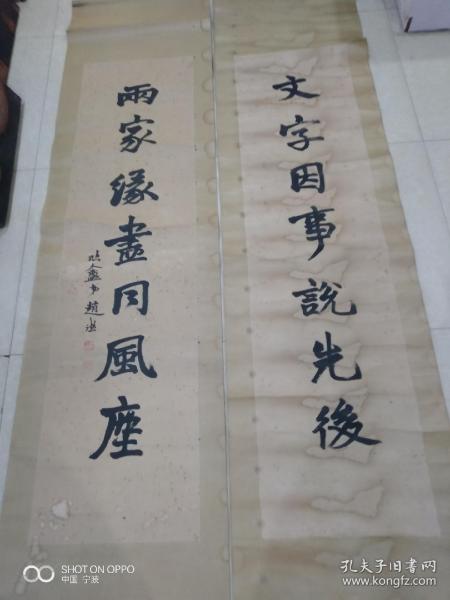 文字因事說先後
兩家緣盡同風塵
趙
SHOT ON OPPO
中国 宁波
孔夫子旧书网
www.kongfz.com